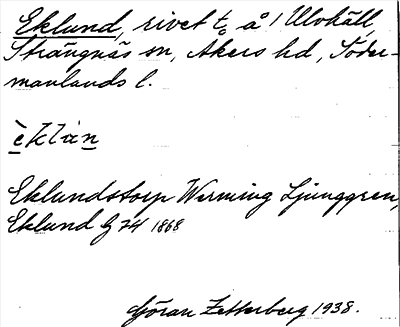 Eklund, rivet t. å / Ulvhäll,
Strängnäs sn, Åkers hd, Söder-
manlands l.
èklàn
Eklundstorp Werming Ljunggren,
Eklund G 74 1868
Göran Zetterberg 1938.